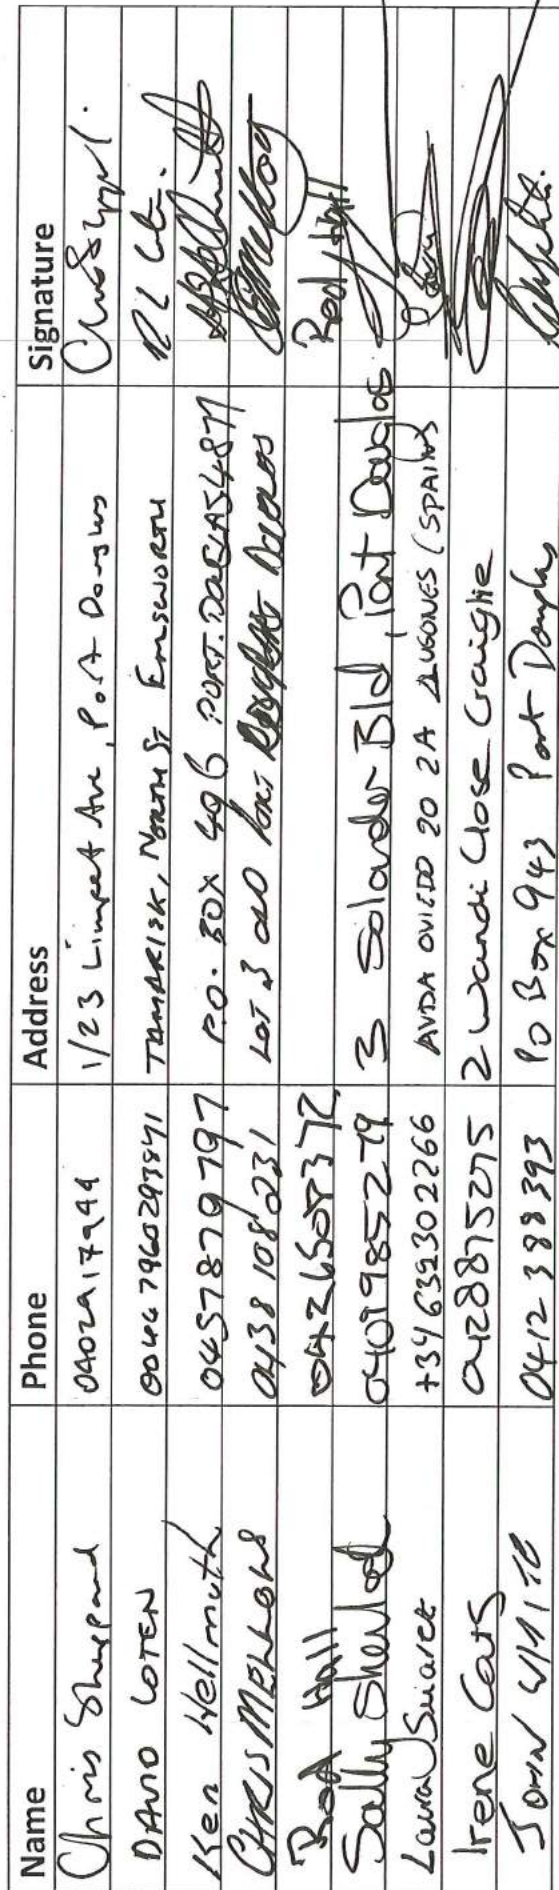 Name Phone Address Signature
Chris Sheppard 0402917944 1/23 Limpet Ave, Port Douglas
DAVID LOTEN 00447960293841 TAMARISK, NORTH St EMSWORTH
Ken Hellmuth 0457879797 P.O. BOX 496 PORT. DOUGLAS 4877
CHRIS MELLOWS 0438 108 231 LOT 3 OLD PORT DOUGLAS
Rod Hall 0426508372 Rod Hall
Sally 0409985279 3 Solander Bld, Port Douglas
Laura Suarez +34 639302266 AVDA OVIEDO 20 2A LUGONES (SPAIN)
Irene Cats 0428875275 2 Wandi Close Craiglie
JOHN WHITE 0412 388 393 PO Box 943 Port Douglas